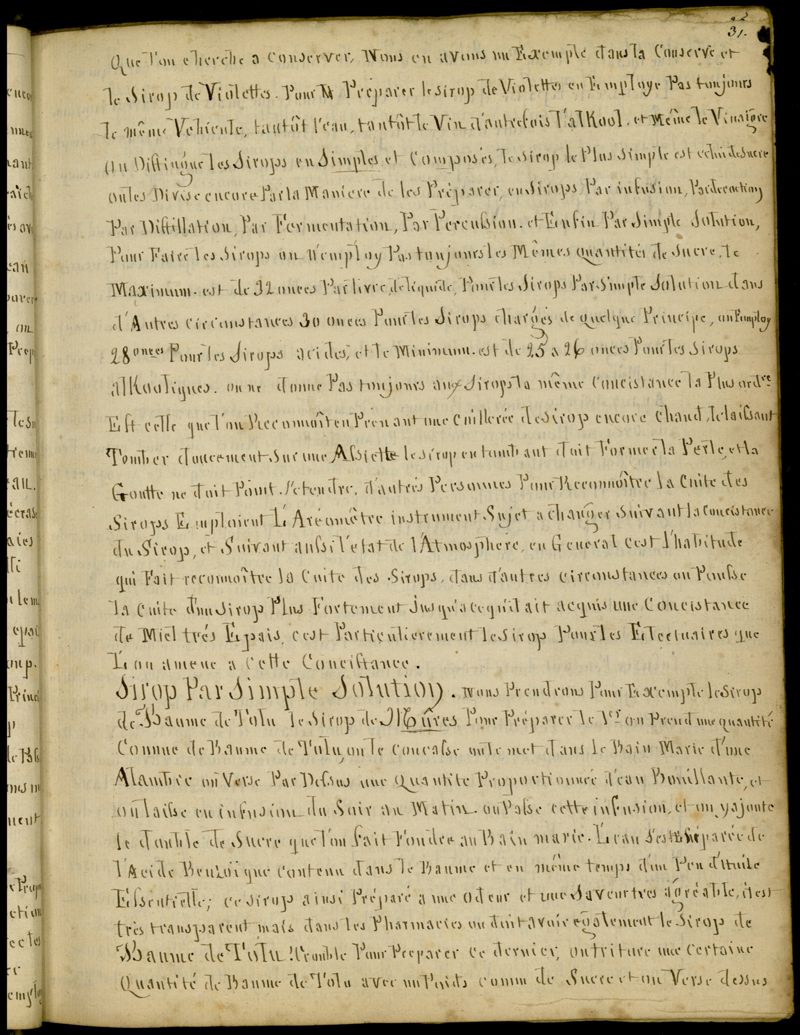 31.
Que l'on cherche a Conserver, Nous en avons un Exemple dans la Conserve et
le Sirop de Violettes. Pour Préparer le sirop de Violettes on Employe Pas toujours
le même Vehicule, tantôt l'eau, tantôt le Vin, d'autrefois l'alkool. et Même le Vinaigre
On Distingue les Sirops en Simples et Composés, le Sirop le Plus Simple est celui de Sucre
on les Divise encore Par la Maniere de les Préparer, en Sirops, Par infusion, Par decoction,
Par Distillation, Par Fermentation, Par Percussion. et Enfin Par Simple Solution,
Pour Faire les Sirops on N'employ Pas toujours les Mêmes quantités de Sucre, le
Maximum. est de 32 onces Par livre de liquide, Pour les Sirops Par Simple Solution dans
d'Autres circonstances 30 onces Pour les Sirops chargés de quelque Principe, on Employ
28 onces Pour les Sirops acides, et le Minimum. est de 25 a 26 onces Pour les Sirops
alkooliques. on ne donne Pas toujours aux Sirops la même Concistance la Plus ordre
Est celle que l'on Reconnoît en Prenant une Cuillerée de Sirop encore Chaud, le laissant
Tomber doucement Sur une Assiette le sirop en tombant doit Former la Perle, et la
Goutte ne doit Point S'etendre. d'autres Personnes Pour Reconnoître la Cuite des
Sirops Emploient L'Aréomètre instrument Sujet a changer Suivant la Concistance
du Sirop, et Suivant aussi l'etat de l'Atmosphere, en General c'est l'habitude
qui Fait reconnoître la Cuite des Sirops, dans d'autres circonstances on Pousse
la Cuite d'un Sirop Plus Fortement jusqu'a ce qu'il ait acquis une Concistance
de Miel trés Epais, c'est Particulierement le Sirop Pour les Electuaires que
L'on amene a Cette Concistance.
Sirop Par Simple Solution. Nous Prendrons Pour Exemple le Sirop
de Baume de Tolu le Sirop de Mûres Pour Préparer le 1er on Prend une quantité
Connue de Baume de Tolu, on le Concasse on le met dans le Bain Marie d'une
Alambic on Verse Par Dessus une Quantité Proportionnée d'eau Bouillante, et
on laisse en infusion du Soir au Matin. on Passe cette infusion, et on y ajoute
le double de Sucre que l'on Fait Fondre au Bain marie. L'eau s'est emparée de
l'Acide Benzoique contenu dans le Baume et en même temps d'un Peu d'Huile
Essentielle, ce sirop ainsi Préparé a une odeur et une Saveur trés agréable, il est
trés transparent mais dans les Pharmacies on doit avoir egalement le Sirop de
Baume de Tolu Trouble Pour Preparer ce dernier, on triture une Certaine
Quantité de Baume de Tolu avec un Poids connu de Sucre et on Verse dessus